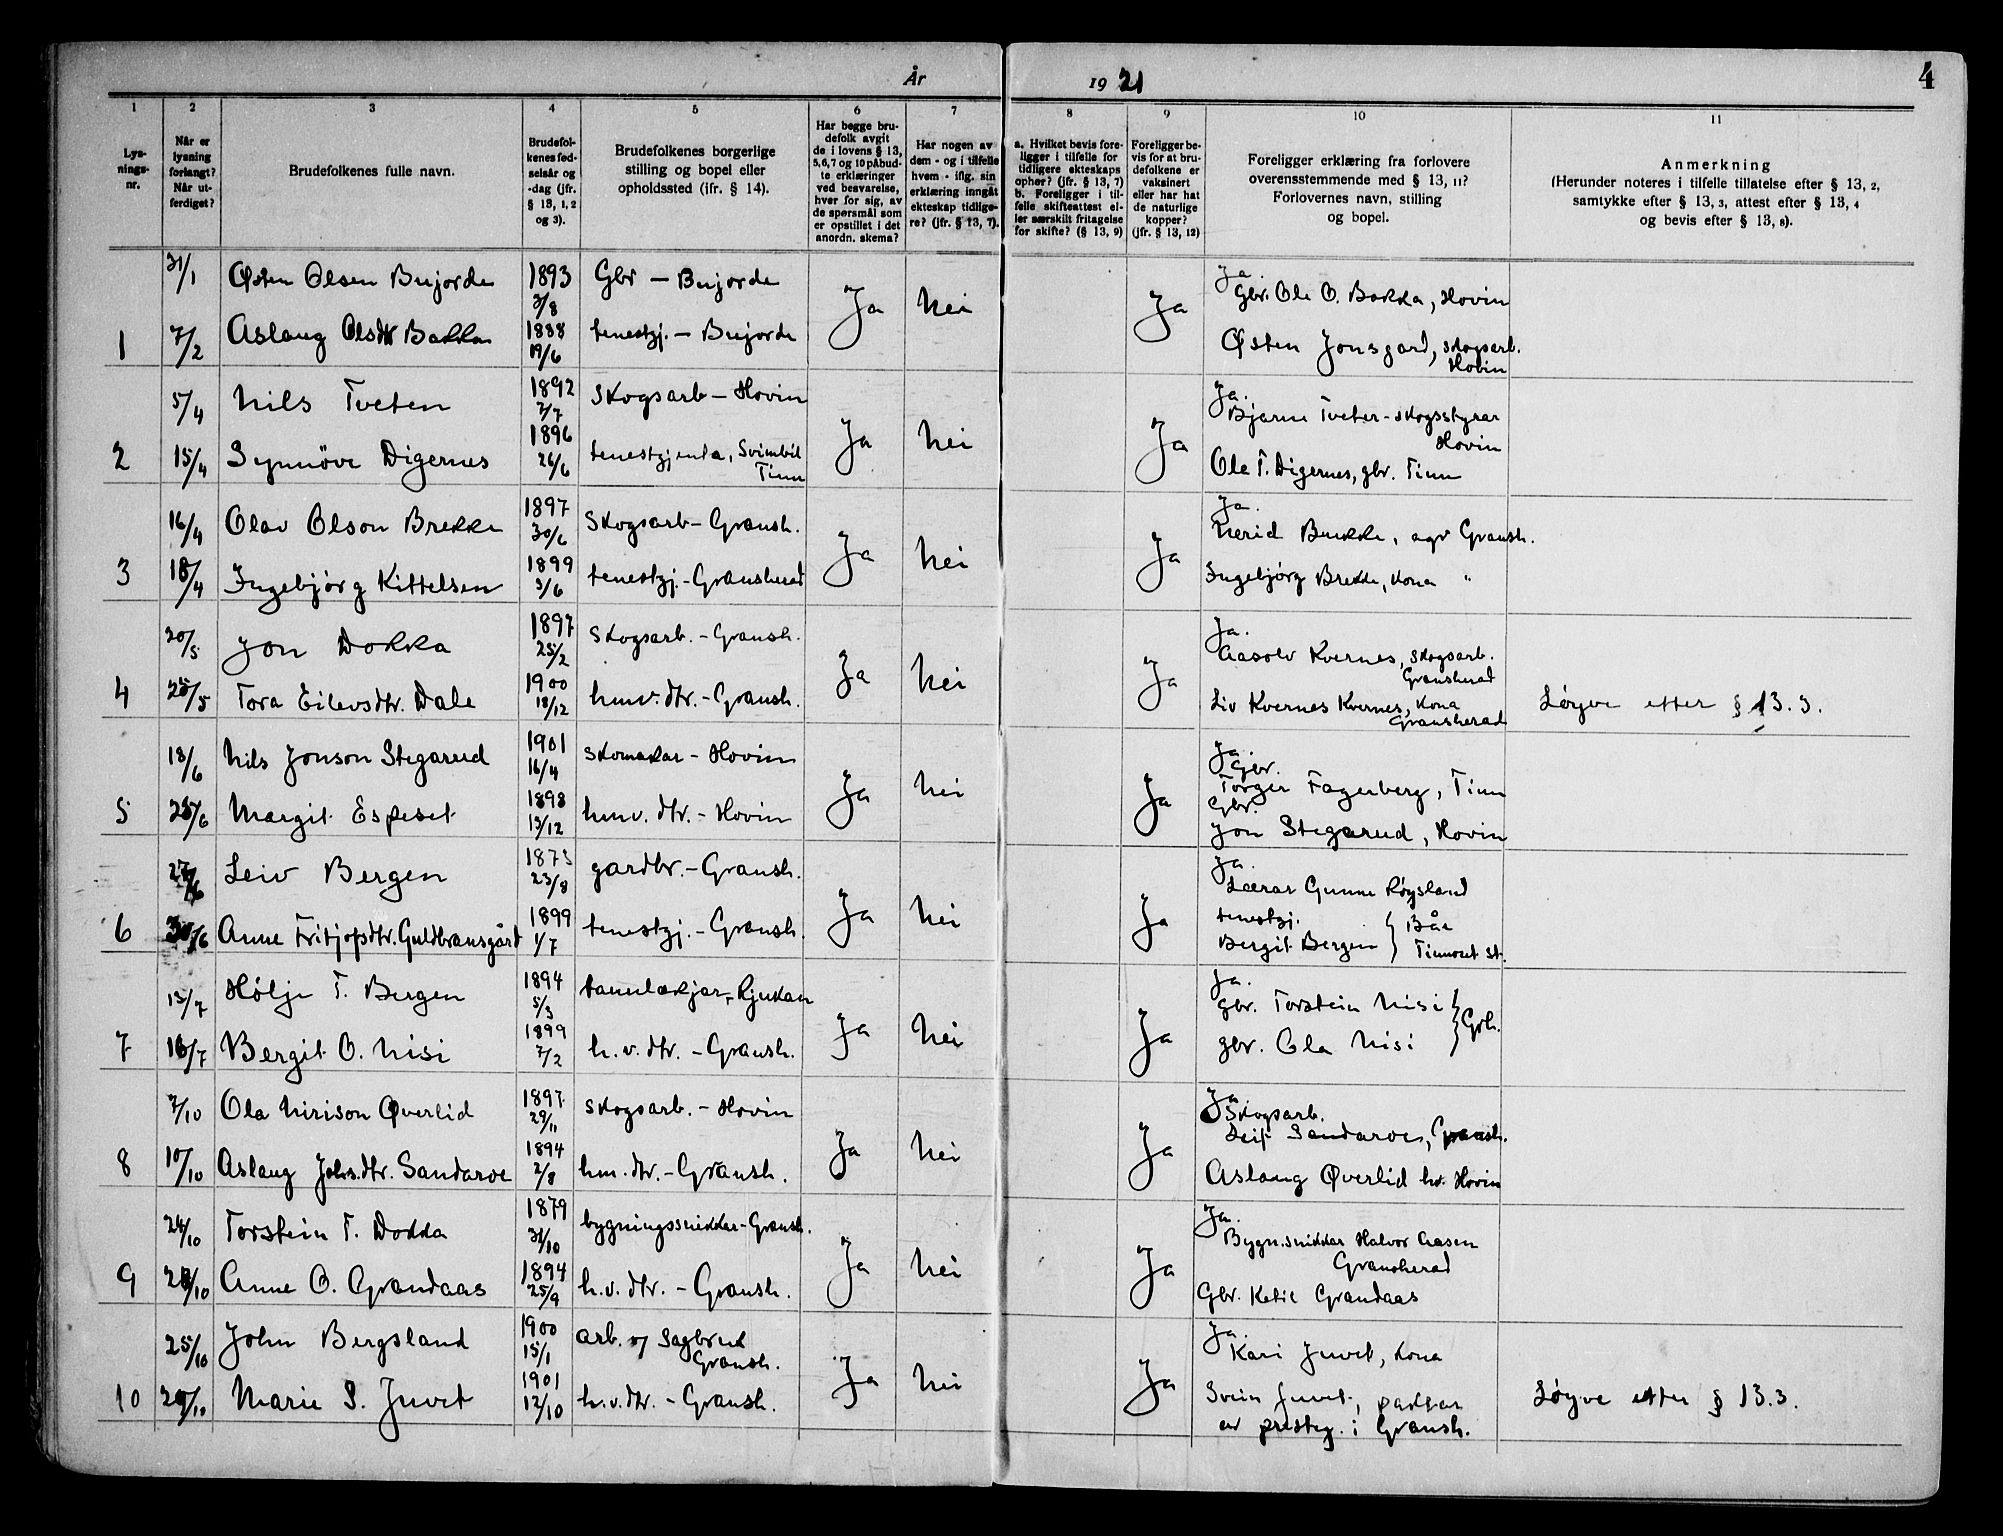 År 1921
4
1 2 3 4 5 6 7 8 9 10 11
Lys-
nings-
nr.
Når er
lysning
forlangt?
Når ut-
ferdiget?
Brudefolkenes fulle navn.
Brudefol-
kenes fød-
selsår og
-dag (jfr.
§ 13, 1, 2
og 3).
Brudefolkenes borgerlige
stilling og bopel eller
opholdssted (ifr. § 14).
Har begge bru-
defolk avgit
de i lovens § 13,
5,6,7 og 10 påbud-
te erklæringer
ved besvarelse,
hver for sig, av
de spørsmål som
er opstillet i det
anordn. skema?
Har nogen av
dem - og i tilfelle
hvem - iflg. sin
erklæring inngåt
ekteskap tidlige-
re? (jfr. § 13, 7).
a. Hvilket bevis fore-
ligger i tilfelle for
tidligere ekteskaps
ophør? (jfr. § 13, 7)
b. Foreligger i til-
felle skifteattest el-
ler særskilt fritagelse
for skifte? (§ 13, 9)
Foreligger be-
vis for at bru-
defolkene er
vaksinert
eller har hat
de naturlige
kopper?
(jfr. § 13, 12)
Foreligger erklæring fra forlovere
overensstemmende med § 13, 11?
Forlovernes navn, stilling
og bopel.
Anmerkning
(Herunder noteres i tilfelle tillatelse efter § 13, 2,
samtykke efter § 13, 3, attest efter § 13, 4
og bevis efter § 13, 8).
31/1 Østen Olsen Bujorde 1893 3/8 Gbr – Bujorde Ja Nei Ja Ja. Gbr. Ole O. Bakka, Hovin
1 7/2 Aslaug Olsdtr Bakka 1888 19/6 tenestgj. – Bujorde Østen Jonsgard, skogsarb.
Hovin
5/4 Nils Tveten 1892 2/7 Skogsarb – Hovin Ja Nei Ja Ja. Bjarne Tveten - skogsstyrar
Hovin
2 15/4 Synnöve Digernes 1896 26/6 tenestgjenta, Svimbil
Tinn Ole T. Digernes, gbr. Tinn
16/4 Olav Olson Brekke 1897 30/6 Skogsarb – Gransh. Ja Nei Ja Ja. Nerid Brekke, agr Gransh.
3 18/4 Ingebjörg Kittelsen 1899 3/6 tenestgj. – Gransherad Ingebjörg Brekke, kona "
20/5 Jon Dokka 1897 25/2 Skogsarb. – Gransh. Ja Nei Ja Ja. Aasolv Kvernes, skogsarb.
Gransherad
4 25/5 Tora Eilevsdtr. Dale 1900 18/12 hmv. dtr. – Gransh. Liv Kvernes Kvernes, kona
Gransherad Løyve etter § 13.3.
18/6 Nils Jonson Stegarud 1901 16/4 Skomakar – Hovin Ja Nei Ja Ja. Gbr.
Torger Fagerberg, Tinn
5 25/6 Margit Espeset 1898 13/12 hmv. dtr. – Hovin Gbr.
Jon Stegarud, Hovin
27/6 Leiv Bergen 1873 23/8 gardbr. – Gransh. Ja Nei Ja Ja. Lærar Gunne Røysland
6 30/6 Anne Fritjofsdtr. Guldbransgård 1899 1/7 tenestgj. – Gransh. tenestgj.
Bergit Bergen } Båe
Tinnoset st.
15/7 Hølje T. Bergen 1894 5/3 tannlækjar – Rjukan Ja Nei Ja Ja. gbr. Torstein Nisi } Grh.
7 16/7 Bergit O. Nisi 1899 7/2 h.v. dtr. – Gransh. gbr. Ola Nisi
7/10 Ola Nirison Øverlid 1897 29/11 Skogsarb. – Hovin Ja Nei Ja Ja Skogsarb.
Leif Sandaroe, Gransh.
8 10/10 Aslaug Johs.dtr. Sandaroe 1894 2/8 hm. dtr. – Gransh. Aslaug Øverlid hv. Hovin
24/10 Torstein T. Dokka 1879 31/10 bygningssnikkar – Gransh. Ja Nei Ja Ja. Bygn.snikkar Halvor Aasen
Gransherad
9 28/10 Anne O. Grandaas 1894 25/9 h.v. dtr. – Gransh. Gbr. Ketil Grandaas
25/10 John Bergsland 1900 15/1 arb. v/ Sagbruk
Gransh. Ja Nei Ja Ja. Kari Juvet, kona
10 29/10 Marie S. Juvet 1901 12/10 h.v. dtr. – Gransh. Svein Juvet, paktar
av presteg. i Gransh. Løyve etter § 13.3.